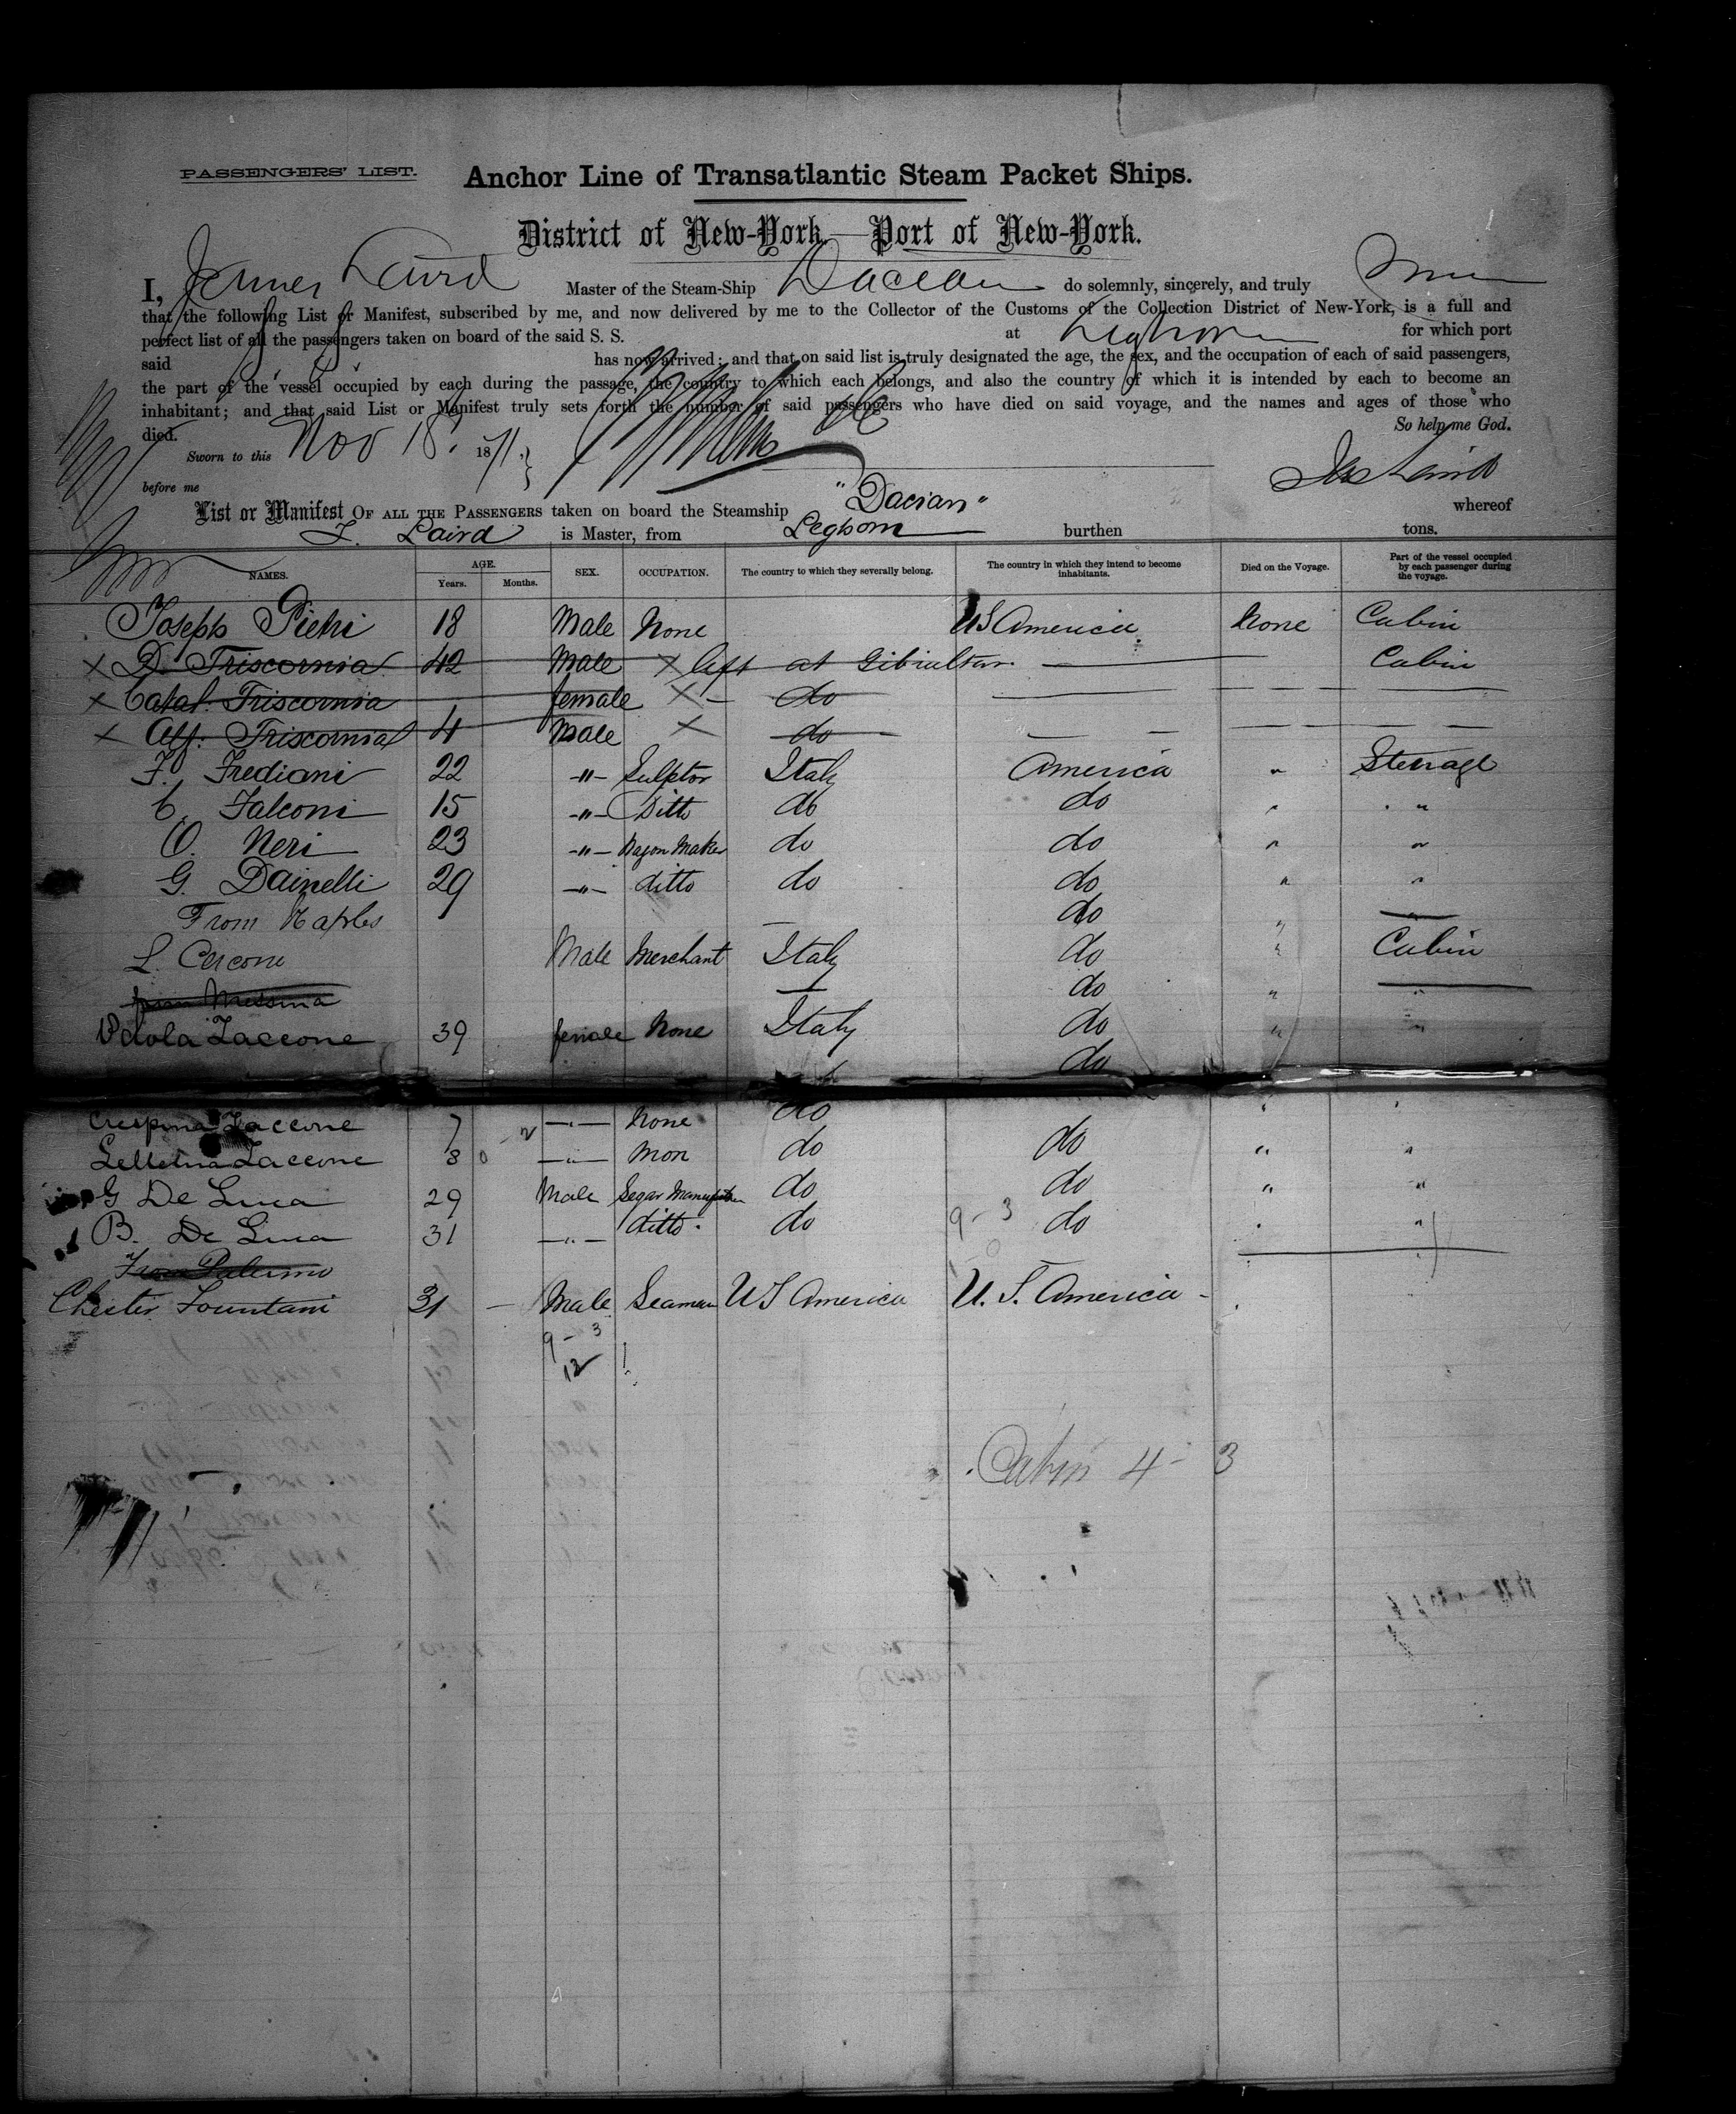 PASSENGERS' LIST. Anchor Line of Transatlantic Steam Packet Ships.
District of New-York—Port of New-York.
I, James Laird Master of the Steam-Ship Dacian do solemnly, sincerely, and truly
that the following List or Manifest, subscribed by me, and now delivered by me to the Collector of the Customs of the Collection District of New-York, is a full and
perfect list of all the passengers taken on board of the said S. S. at Leghorn for which port
said has now arrived; and that on said list is truly designated the age, the sex, and the occupation of each of said passengers,
the part of the vessel occupied by each during the passage, the country to which each belongs, and also the country of which it is intended by each to become an
inhabitant; and that said List or Manifest truly sets forth the number of said passengers who have died on said voyage, and the names and ages of those who
died. So help me God.
Sworn to this Nov 18 1871. Jas Laird
before me
List or Manifest OF ALL THE PASSENGERS taken on board the Steamship "Dacian" whereof
J. Laird is Master, from Leghorn burthen tons.
NAMES. AGE. Years. Months. SEX. OCCUPATION. The country to which they severally belong. The country in which they intend to become inhabitants. Died on the Voyage. Part of the vessel occupied by each passenger during the voyage.
Joseph Pietri 18 Male None US America None Cabin
X D. Triscornia 42 Male X left at Gibraltar Cabin
X Catal. Triscornia female X - do
X Alf. Triscornia 4 Male X do -
F. Frediani 22 -"- Sulptor Italy America " Steerage
C. Falconi 15 -"- Ditto do do " "
O. Neri 23 -"- Wagon Maker do do " "
G. Dainelli 29 -"- ditto do do " "
From Naples do " "
L. Cercone Male Merchant Italy do " Cabin
from Messina do " "
Paola Zaccone 39 female None Italy do " "
do
Crespina Zaccone 7 -"- None do " "
Zaccone 8 -"- Non do do " "
G De Luca 29 Male Segar do do " "
B. De Luca 31 -"- ditto do 9 - 3 do " "
From Palermo
Chester Fountani 31 - Male Seaman US America U. S. America -
9 - 3
12
Cabin 4 - 3